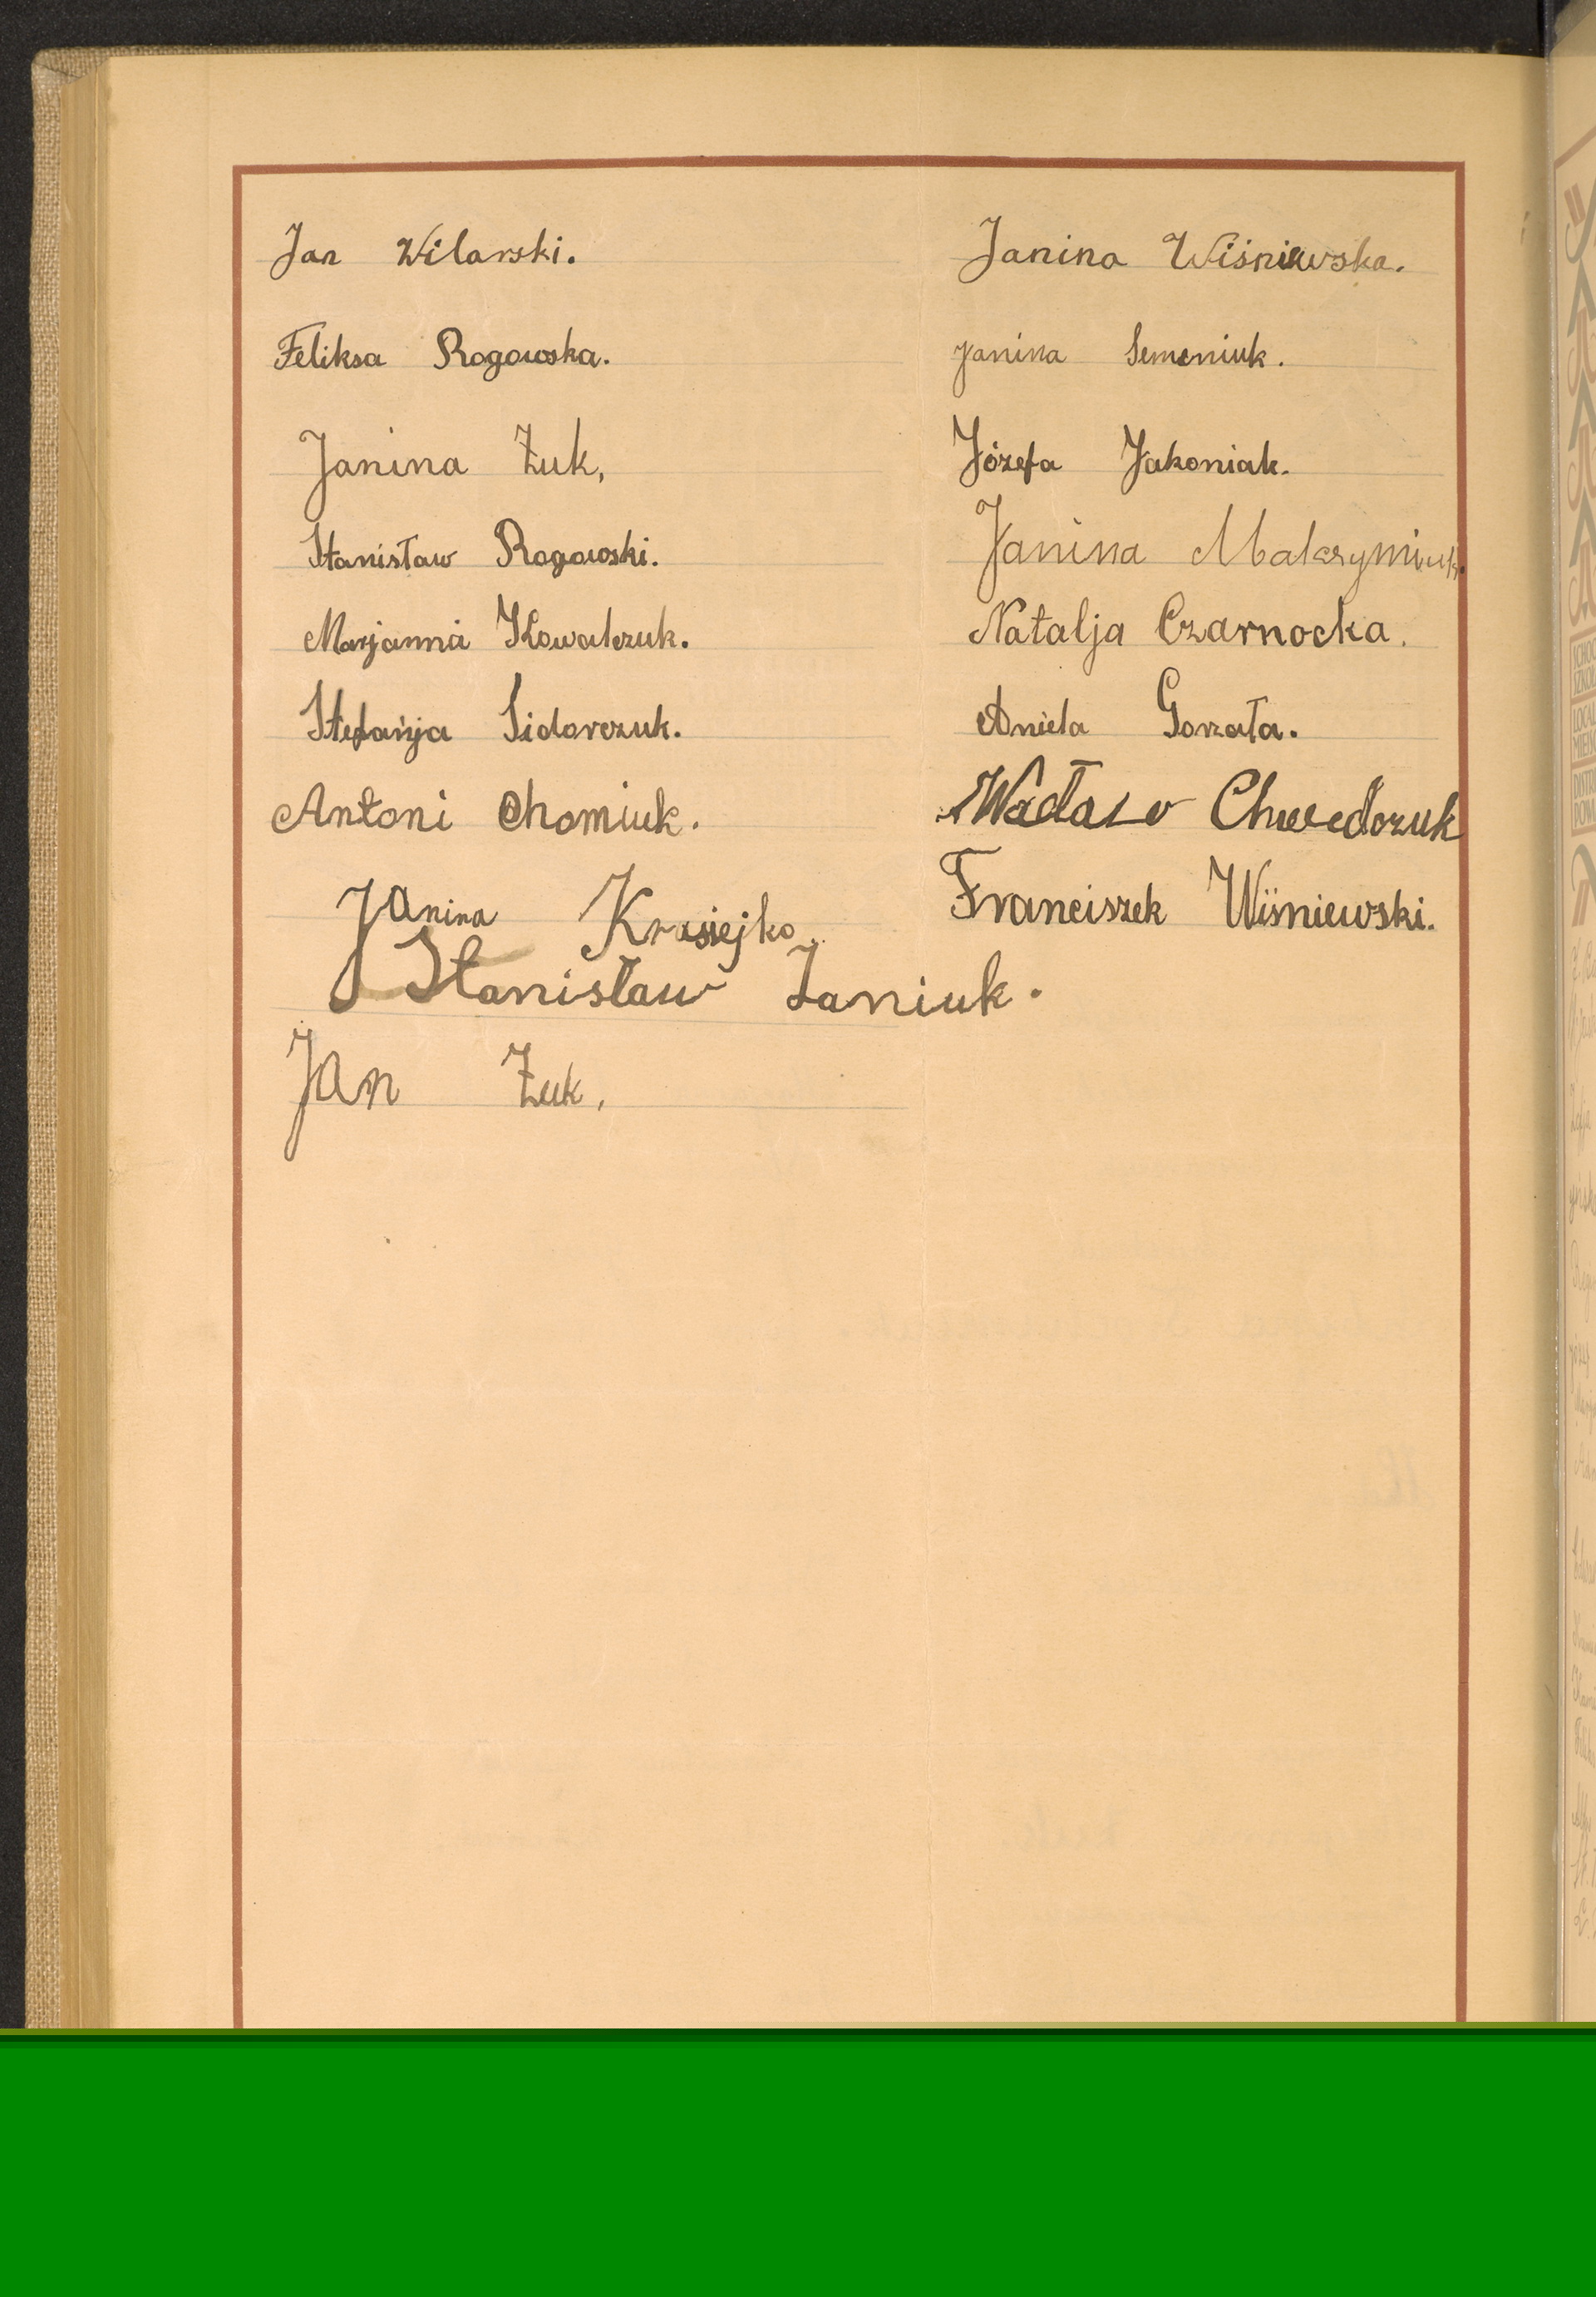 Jan Wilawski.
Feliksa Rogowska.
Janina Żuk,
Stanisław Rogowski.
Marjanna Kowalczuk.
Stefanja Sidorczuk.
Antoni Chomiuk.
Janina Krasiejko
Stanisław Janiuk.
Jan Żuk,
Janina Wiśniewska.
Janina Semeniuk.
Józefa Jakoniak.
Janina Maksymiuk.
Natalja Czarnocka.
Aniela Gorzała.
Chwedoruk
Franciszek Wiśniewski.